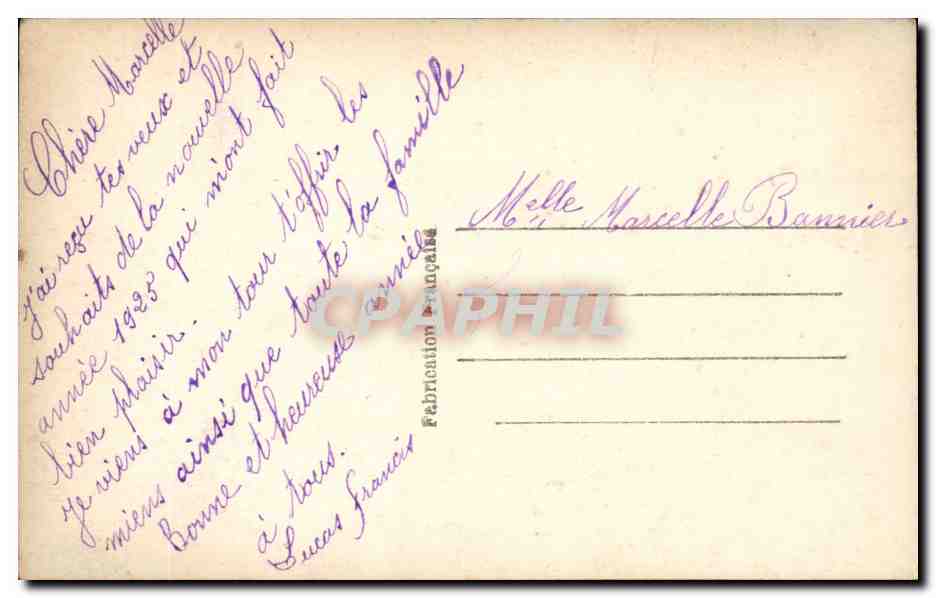 Chère Marcelle
j'ai reçu tes veux et
souhaits de la nouvelle
année 1925 qui m'ont fait
bien plaisir.
Je viens à mon tour t'offrir les
miens ainsi que toute la famille
Bonne et heureuse année
à tous.
Lucas Francis
Fabrication Française
Melle Marcelle Bannier
CPAPHIL